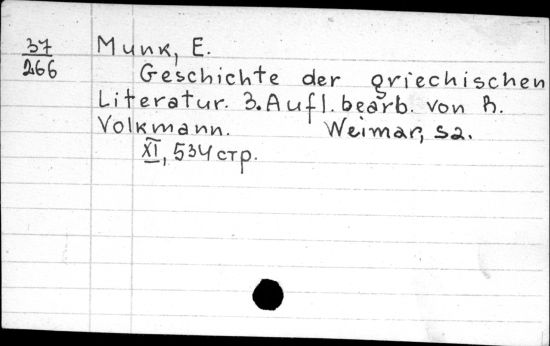 37
266
Munk, E.
Geschichte der griechischen
Literatur. 3. Aufl. bearb. von R.
Volkmann. Weimar, sa.
XI, 534 стр.